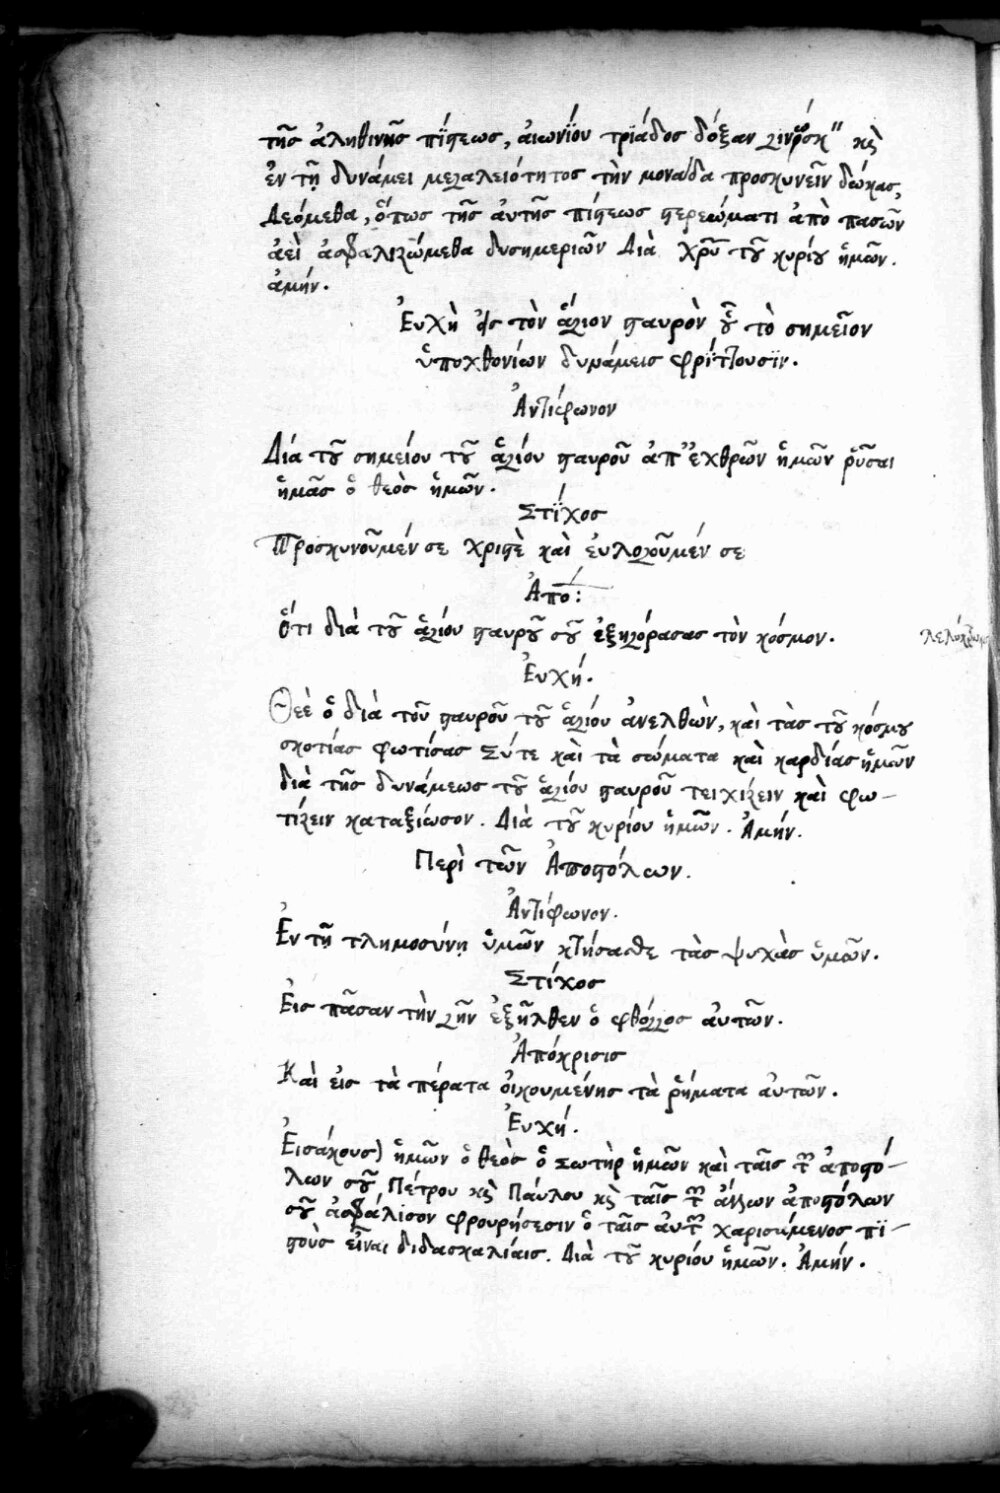 τῆς ἀληθινῆς πίστεως, αἰωνίου τριάδος δόξαν γινώσκ" κὶ
ἐν τῇ δυνάμει μεγαλειότητος τὴν μονάδα προσκυνεῖν δώκας,
Δεόμεθα, ὅπως τῆς αὐτῆς πίστεως στερεώματι ἀπὸ πασῶν
ἀεὶ ἀσφαλιζώμεθα δυσημεριῶν Διὰ Χρῦ τοῦ κυρίου ἡμῶν.
ἀμήν.
Ἐυχὴ εἰς τὸν ἅγιον σταυρὸν οὗ τὸ σημεῖον
ὑποχθονίων δυνάμεις φρίττουσιν.
Ἀντίφωνον
Διά τοῦ σημείου τοῦ ἁγίου σταυροῦ ἀπ' ἐχθρῶν ἡμῶν ῥῦσαι
ἡμᾶς ὁ θεὸς ἡμῶν.
Στίχος
Προσκυνοῦμέν σε Χριστὲ καὶ ἐυλογοῦμέν σε
Ἀπό:
Ὅτι διὰ τοῦ ἁγίου σταυροῦ σοῦ ἐξηγόρασας τὸν κόσμον.
Ἐυχή.
Θεὲ ὁ διὰ τοῦ σταυροῦ τοῦ ἁγίου ἀνελθὼν, καὶ τὰς τοῦ κόσμου
σκοτίας φωτίσας Σύτε καὶ τὰ σώματα καὶ καρδίας ἡμῶν
διὰ τῆς δυνάμεως τοῦ ἁγίου σταυροῦ τειχίζειν καὶ φω-
τίζειν καταξίωσον. Διὰ τοῦ κυρίου ἡμῶν. Ἀμήν.
Περὶ τῶν Ἀποστόλων.
Ἀντίφωνον.
Ἐν τῇ τλημοσύνῃ ὑμῶν κτήσασθε τὰς ψυχὰς ὑμῶν.
Στίχος
Ἐις πᾶσαν τὴν γῆν ἐξῆλθεν ὁ φθόγγος αὐτῶν.
Ἀπόκρισις
Καὶ εἰς τὰ πέρατα οἰκουμένης τὰ ῥήματα αὐτῶν.
Ἐυχή.
Ἐισάκουσ) ἡμῶν ὁ θεὸς ὁ σωτὴρ ἡμῶν καὶ ταῖς τῶν ἀποστό-
λων σοῦ Πέτρου κὶ Παύλου κὶ ταῖς τῶν ἄλλων ἀποστόλων
σοῦ ἀσφάλισον φρουρήσεσιν ὁ ταῖς αὐτῶν χαρισάμενος πι-
στοὺς εἶναι διδασκαλίαις. Διὰ τοῦ κυρίου ἡμῶν. Ἀμήν.